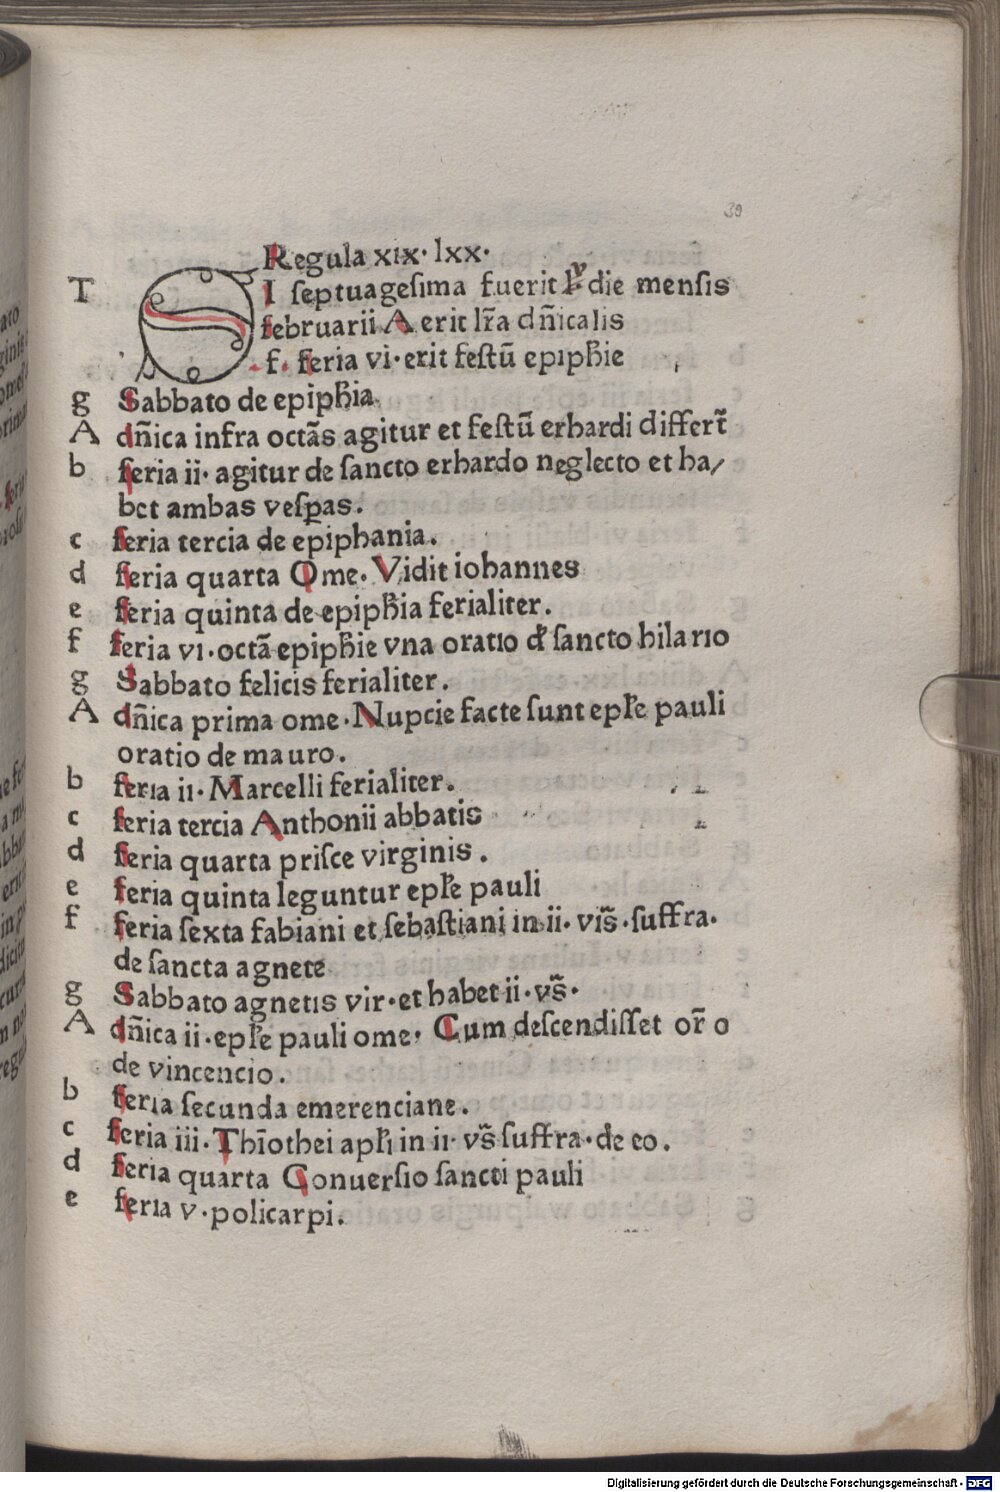 39
Regula xix· lxx·
T SI ſeptuageſima fuerit die menſis
februarii A erit lr̃a dn̄icalis
f· feria vi·erit feſtū epiph̄ie
g Sabbato de epiph̄ia.
A dn̄ica infra octãs agitur et feſtū erhardi differt̃
b feria ii· agitur de ſancto erhardo neglecto et ha/
bet ambas veſꝑas.
c feria tercia de epiphania.
d feria quarta Ome· Vidit iohannes
e feria quinta de epiph̄ia ferialiter.
f feria vi·octã epiph̄ie vna oratio đ ſancto hilario
g Sabbato felicis ferialiter.
A dn̄ica prima ome·Nupcie facte ſunt epl̄e pauli
oratio de mauro.
b feria ii· Marcelli ferialiter.
c feria tercia Anthonii abbatis
d feria quarta priſce virginis.
e feria quinta leguntur epl̄e pauli
f feria ſexta fabiani et ſebaſtiani in ii· viſ̃·ſuffra·
de ſancta agnete
g Sabbato agnetis vir·et habet ii·vſ̃·
A dn̄ica ii·epl̄e pauli ome· Cum deſcendiſſet or̃o
de vincencio.
b feria ſecunda emerenciane.
c feria iii·Thīothei apl̄i in ii· vſ̃ ſuffra·de eo.
d feria quarta Conuerſio ſancti pauli
e feria v·policarpi.
Digitalisierung gefördert durch die Deutsche Forschungsgemeinschaft - DFG